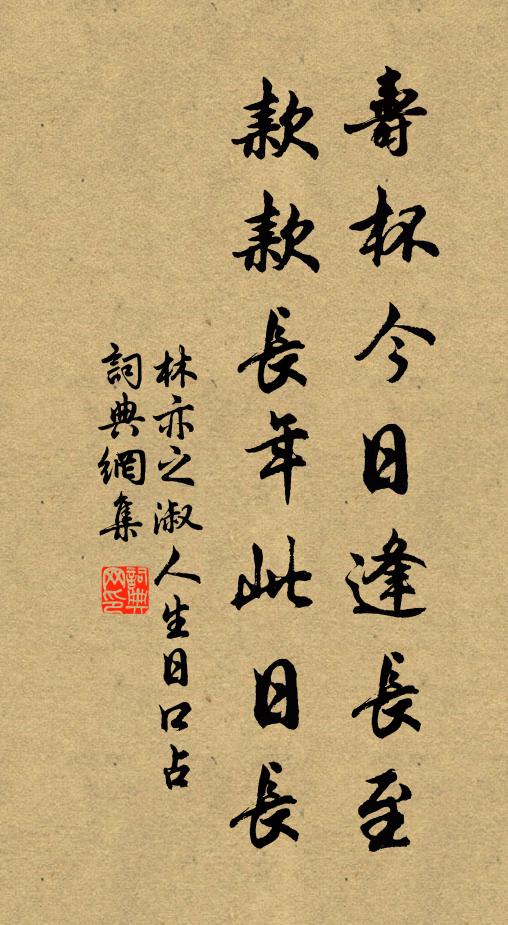 壽杯今日逢長至
款款長年此日長
林亦之淑人生日口占
詞典網集
詞典网印